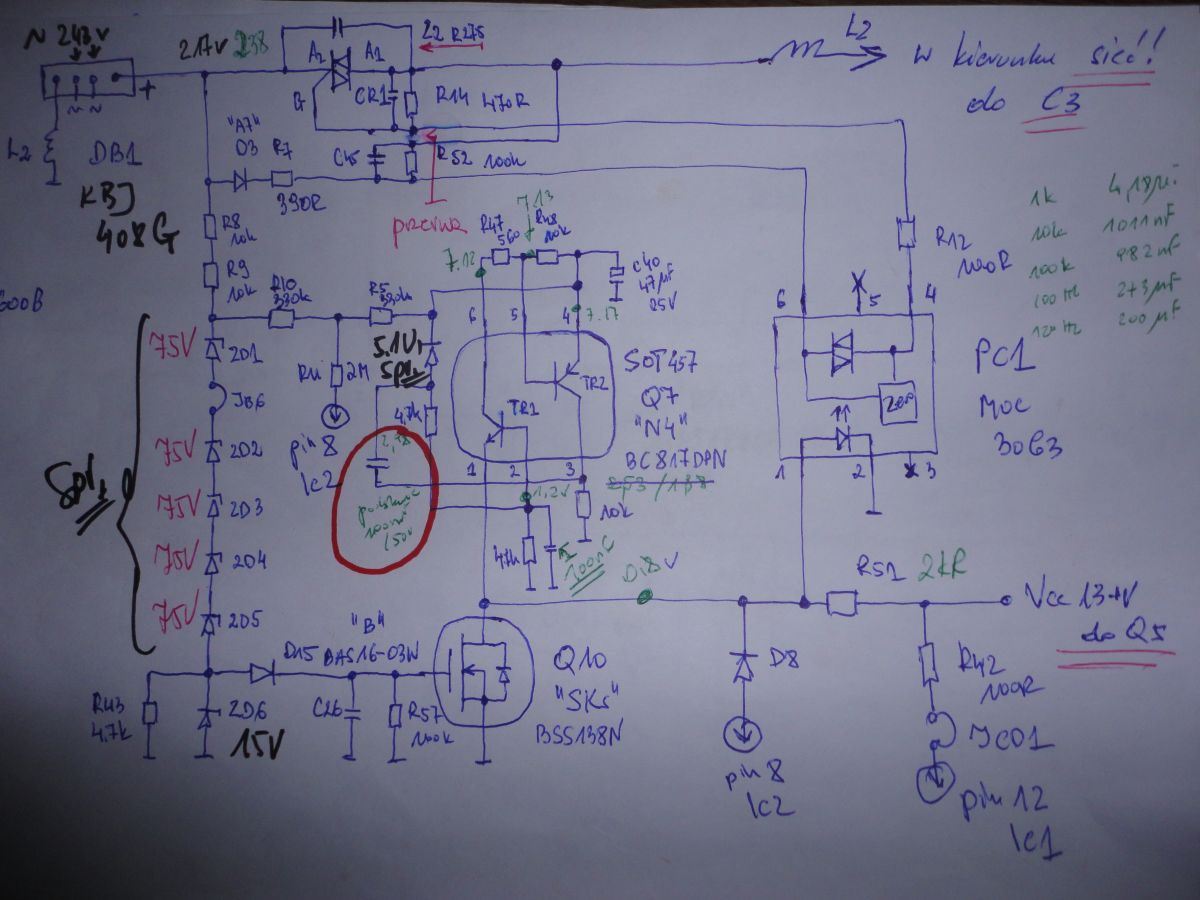 ~ 243V
217V 238
A2
A1
G
CR1
R14 470R
L2 R275
L2
w kierunku sieć!!
do C3
+
~ ~
L2
DB1
KBJ
408G
"A7"
D3
R7
390R
C45
R52 100k
przerwa
R8
10k
R9
10k
600B
R10
330k
R5
330k
R47
560
7.13
R48
10k
7.12
C40
47µF
25V
7.17
1k
10k 1011nF
100k 982nF
100Hz 273µF
120Hz 200µF
R12
100R
6
5
4
6
5
4
75V
ZD1
JB6
R11
2M
pin 8
Ic2
5.1V
5pl.
4.7k
TR1
TR2
SOT457
Q7
"N4"
BC817DPN
1
2
3
1
2
3
PC1
MOC
3063
5pl.
75V
ZD2
75V
ZD3
75V
ZD4
75V
ZD5
100nF
50V
1,2V
10k
47k
100nC
0.8V
R51 2kR
Vcc 13+V
do Q5
D15
"B"
BAS16-03W
Q10
"SKs"
BSS138N
D8
R42
100R
R43
4.7k
ZD6
15V
C26
R57
100k
JC01
pin 8
Ic2
pin 12
Ic1